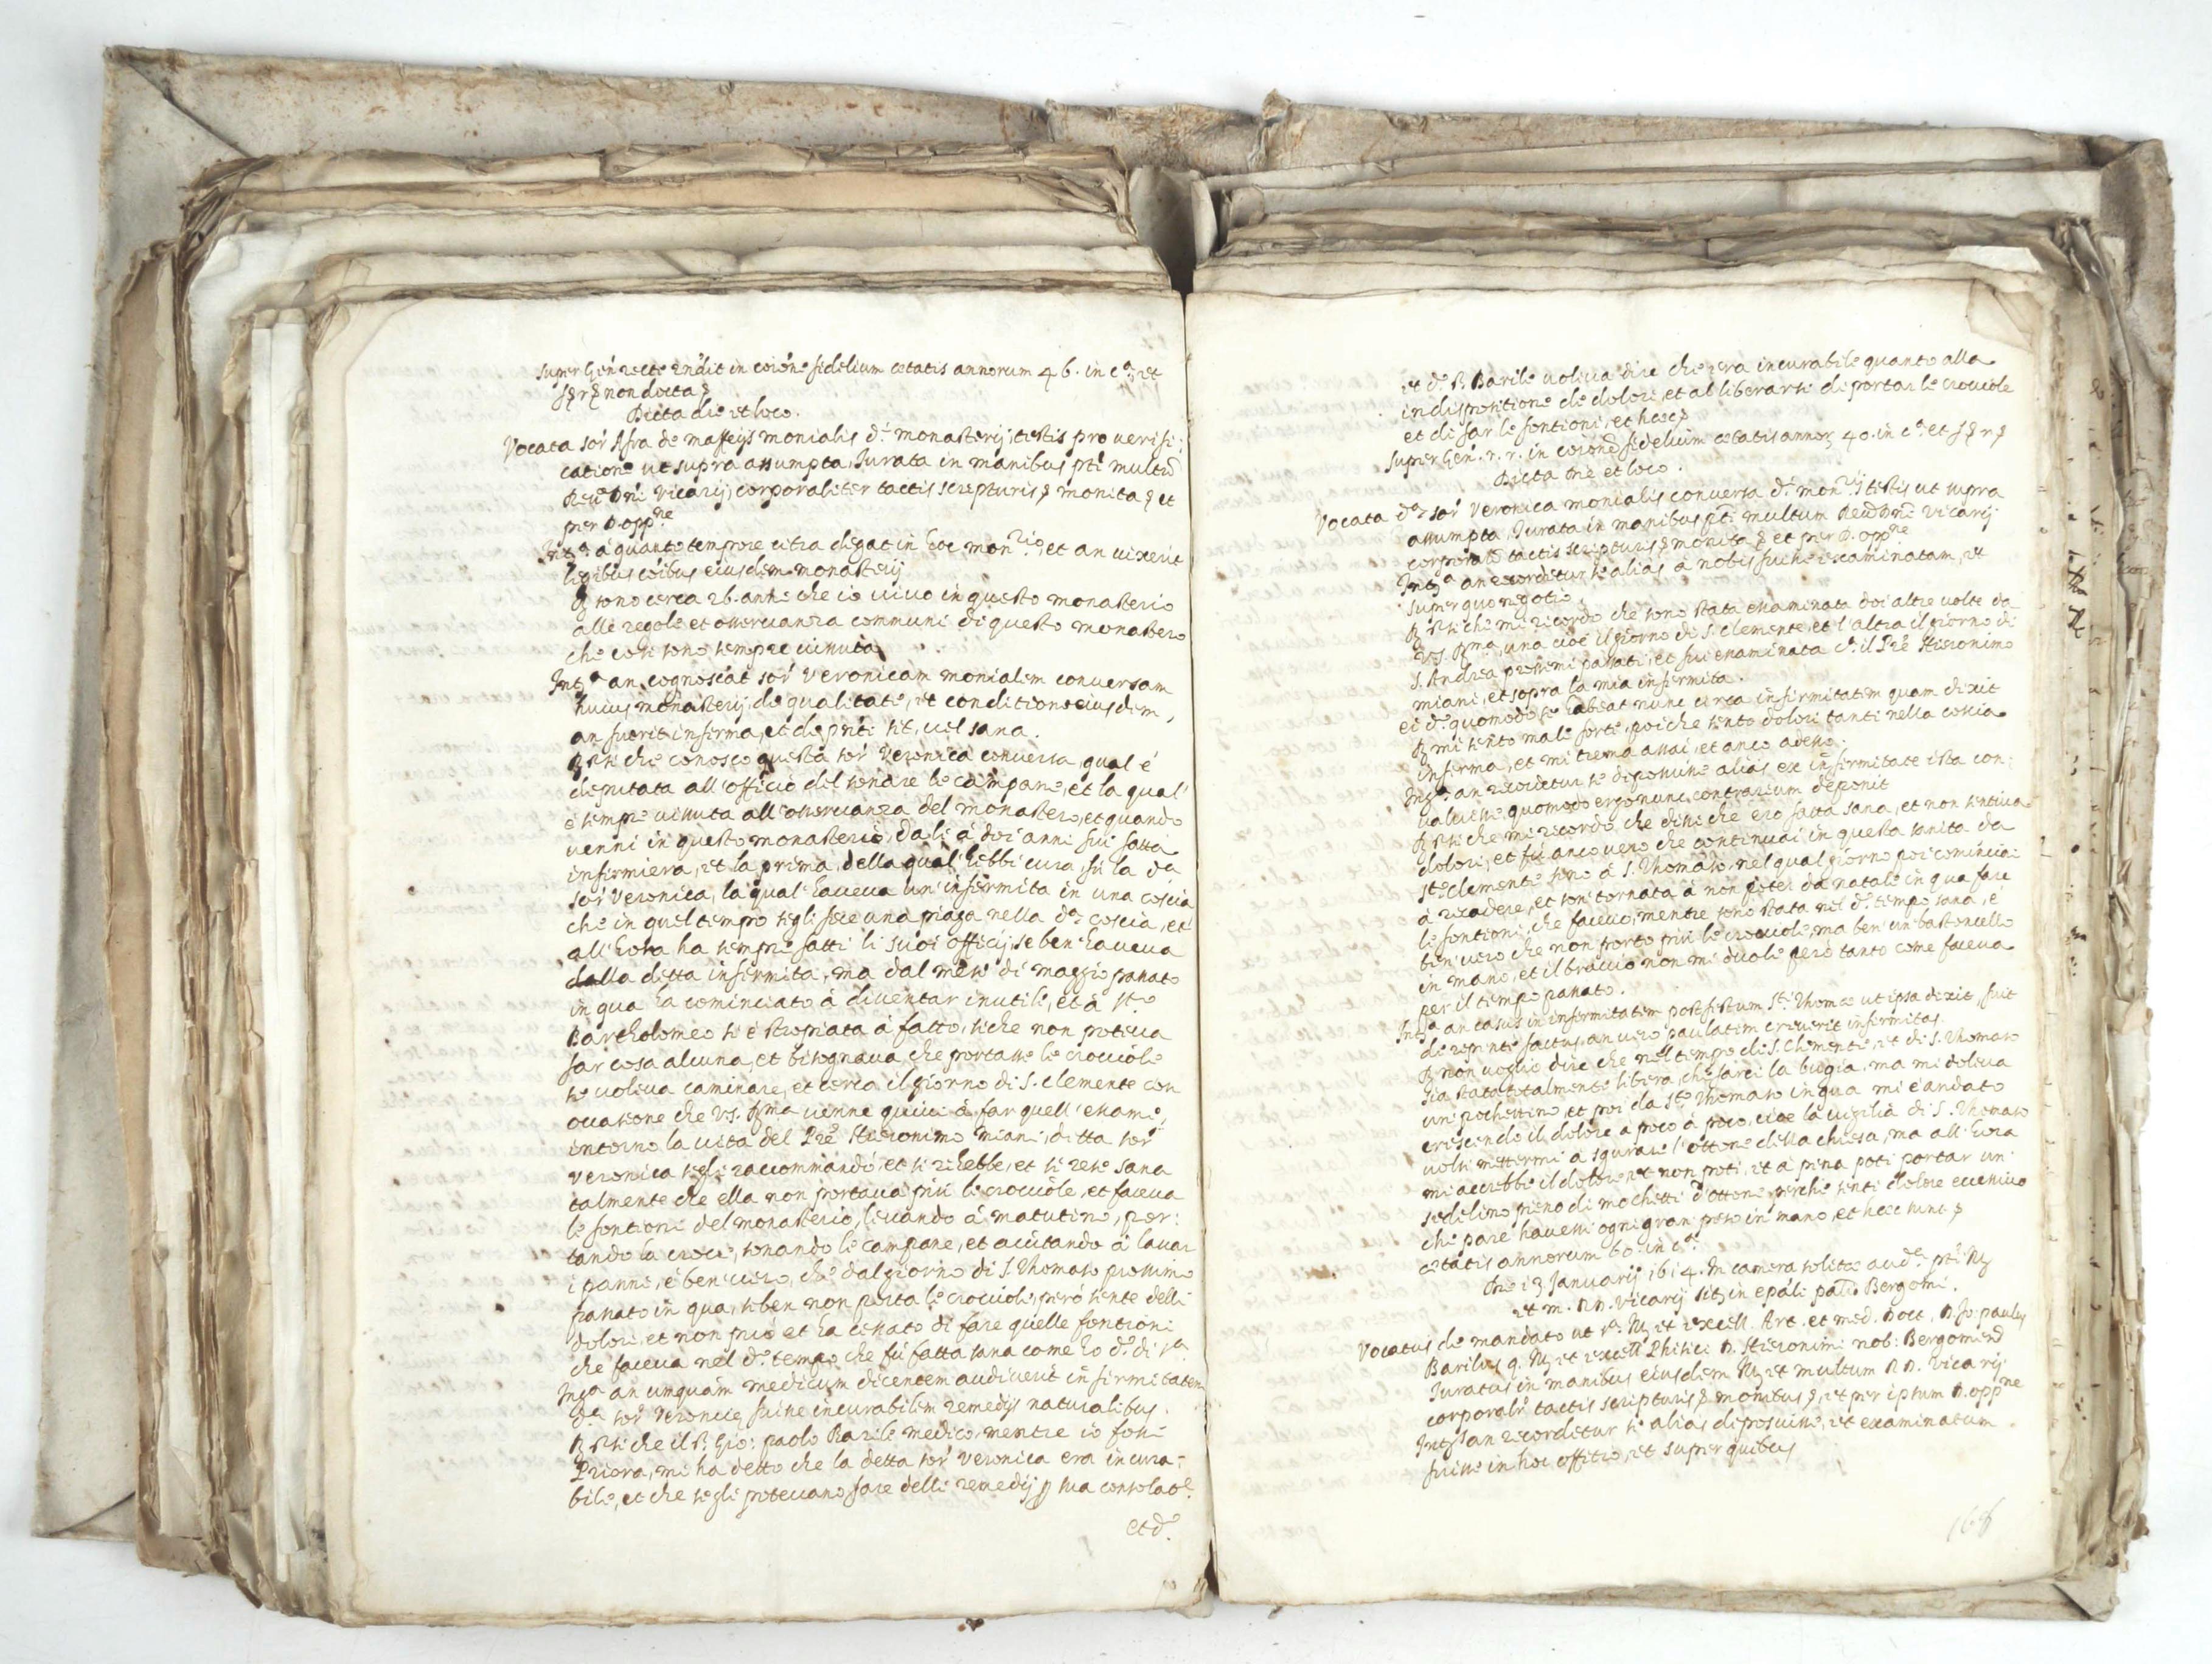 super Gen. recte rñdit in coione fidelium ætatis annorum 46. in cª et
non docta
Dicta die et loco.
Vocata sor Afra de Maffeijs monialis dⁱ monasterij, testis pro verifi:
catione ut supra assumpta, Iurata in manibus pti multũ
Reuᵈⁱ Dñi Vicarij, corporaliter tactis scripturis monita et
per D. oppⁿᵉ
Intª á quanto tempore citra degat in hoc monʳⁱᵒ, et an uixerit
legibus coibus eiusdem monasterij
R sono cerca 26. anni che io uiuo in questo monasterio
alle regole et osseruanza communi di questo monastero
che cosi sono sempre uissuta
Intª an cognoscat sor Veronicam monialem conuersam
huius monasterij, de qualitate, et conditione eiusdem,
an fuerit infirma, et de pñti sit, uel sana.
R che conosco questa sor Veronica conuersa qual é
deputata all'officio del sonare le campane, et la qual'
é sempre uissuta all'osseruanza del monastero, et quando
uenni in questo monasterio, da li á doi anni fui fatta
infirmiera, et la prima della qual' hebbi cura fu la dª
sor Veronica, la qual' haueua un' infirmita in una coscia
che in quel tempo segli fece una piaga nella dª coscia, et
all'hora ha sempre fatti li suoi officij, se ben' haueua
dalla detta infirmita, ma dal mese di maggio passato
in qua ha cominciato á diuentar inutile, et á Sᵗᵒ
Bartholomeo si é stropiata á fatto, siche non poteua
far cosa alcuna, et bisognaua, che portasse le crocciole
se uoleua caminare, et cerca il giorno di S. Clemente con
occasione che V.S. Rma uenne quiui á far quell' esame
intorno la uita del Pre Hieronimo Miani, ditta sor
Veronica segli raccommandó, et si rihebbe, et si rese sana
talmente che ella non portaua piú le crocciole, et faceua
le fontioni del monasterio, leuando á matutino, por:
tando la croce, sonando le campane, et aiutando á lauar
i panni, é ben uero, che dal giorno di S. Thomaso prossimo
passato in qua, se ben non porta le crocciole, peró sente delli
dolori, et non puó et ha cessato di fare quelle fontioni
che faceua nel dº tempo che fu fatta sana come ho dº di sª
Intª an unquam medicum dicentem audiuerit infirmitatem
dᵉ sor Veronice fuisse incurabilem remedijs naturalibus.
R che il S. Gio: paolo Barile medico, mentre io fossi
Priora, mi ha detto che la detta sor Veronica era incura:
bile, et che segli poteuano fare delli remedij p sua consolatᵉ
et dº
et dº S. Barile uoleua dire che era incurabile quanto alla
indispositione de dolori, et al liberarsi di portar le crocciole
et di far le fontioni, et hæc
super Gen. r. r. in coione fidelium ætatis annor 40. in cª et
Dicta die et loco.
Vocata dª sor Veronica monialis conuersa dⁱ monʳⁱʲ testis ut supra
assumpta, Iurata in manibus pti multum Reuᵈⁱ Dñi Vicarij
corporalr tactis scripturis monita et per D. oppⁿᵉ
Intª an recordetur se alias á nobis fuisse examinatam, et
super quo negotio.
R che mi ricordo che sono stata essaminata doi altre uolte da
V.S. Rma, una cioé il giorno di S. Clemente, et l'altra il giorno di
S. Andrea prossimi passati, et fui essaminata cª il Pre Hieronimo
Miani, et sopra la mia infirmita.
ei dº quomodo se habeat nunc circa infirmitatem quam dixit
R mi sento male forte, poiche sento dolori tanti nella coscia
inferma, et mi trema assai, et anco adesso.
Intª an recordetur se deposuisse alias ex infirmitate ista con:
ualuisse quomodo ergo nunc contrarium deponit
R che mi ricordo che dissi che ero fatta sana, et non sentiua
dolori, et fu anco uero che continuai in questa sanita da
Sᵗᵒ Clemente sino á S. Thomaso nel qual giorno poi cominciai
á recadere, et son tornata á non poter da natale in qua fare
le fontioni, che faceuo, mentre sono stata nel dº tempo sana, é
ben uero che non porto piú le crocciole, ma ben' un bastoncello
in mano, et il braccio non mi duole peró tanto come faceua
per il tempo passato.
Intª an casus in infirmitatem post festum Sᵗⁱ Thomæ ut ipsa dixit, fuit
de repente factus, an uero paulatim creuerit infirmitas.
R non uoglio dire che nel tempo di S. Clemente, et di S. Thomaso
sia stata totalmente libera, che farei la bugia, ma mi doleua
un pochettino, et poi da Sᵗᵒ Thomaso in qua mi é andato
crescendo il dolore a poco á poco, cioe la uigilia di S. Thomaso
uolsi mettermi á sgurare l'ottone della chiesa, ma all'hora
mi accrebbe il dolore et non poti, et á pena poti portar un
sedelino pieno di mochetti d'ottone, perche senti dolore eccessiuo
che pare hauessi ogni gran peso in mano, et hæc sunt
ætatis annorum 60. in cª
Die 13 Januarij 1614. In camera solitæ audᵉ pti Ill
et m. RD. Vicarij sita in epali palᵒ Bergomi.
Vocatus de mandato ut sª Ill et excell. Art. et med. Doct. D. Jo: paulus
Barilus q. Ill et excell Phisici D. Hieronimi nob: Bergomensᵈ
Iuratus in manibus eiusdem Ill et multum RD. Vicarij
corporalr tactis scripturis monitus, et per ipsum D. oppⁿᵉ
Intˢ an recordetur se alias deposuisse, et examinatum
fuisse in hoc offitio, et super quibus
168